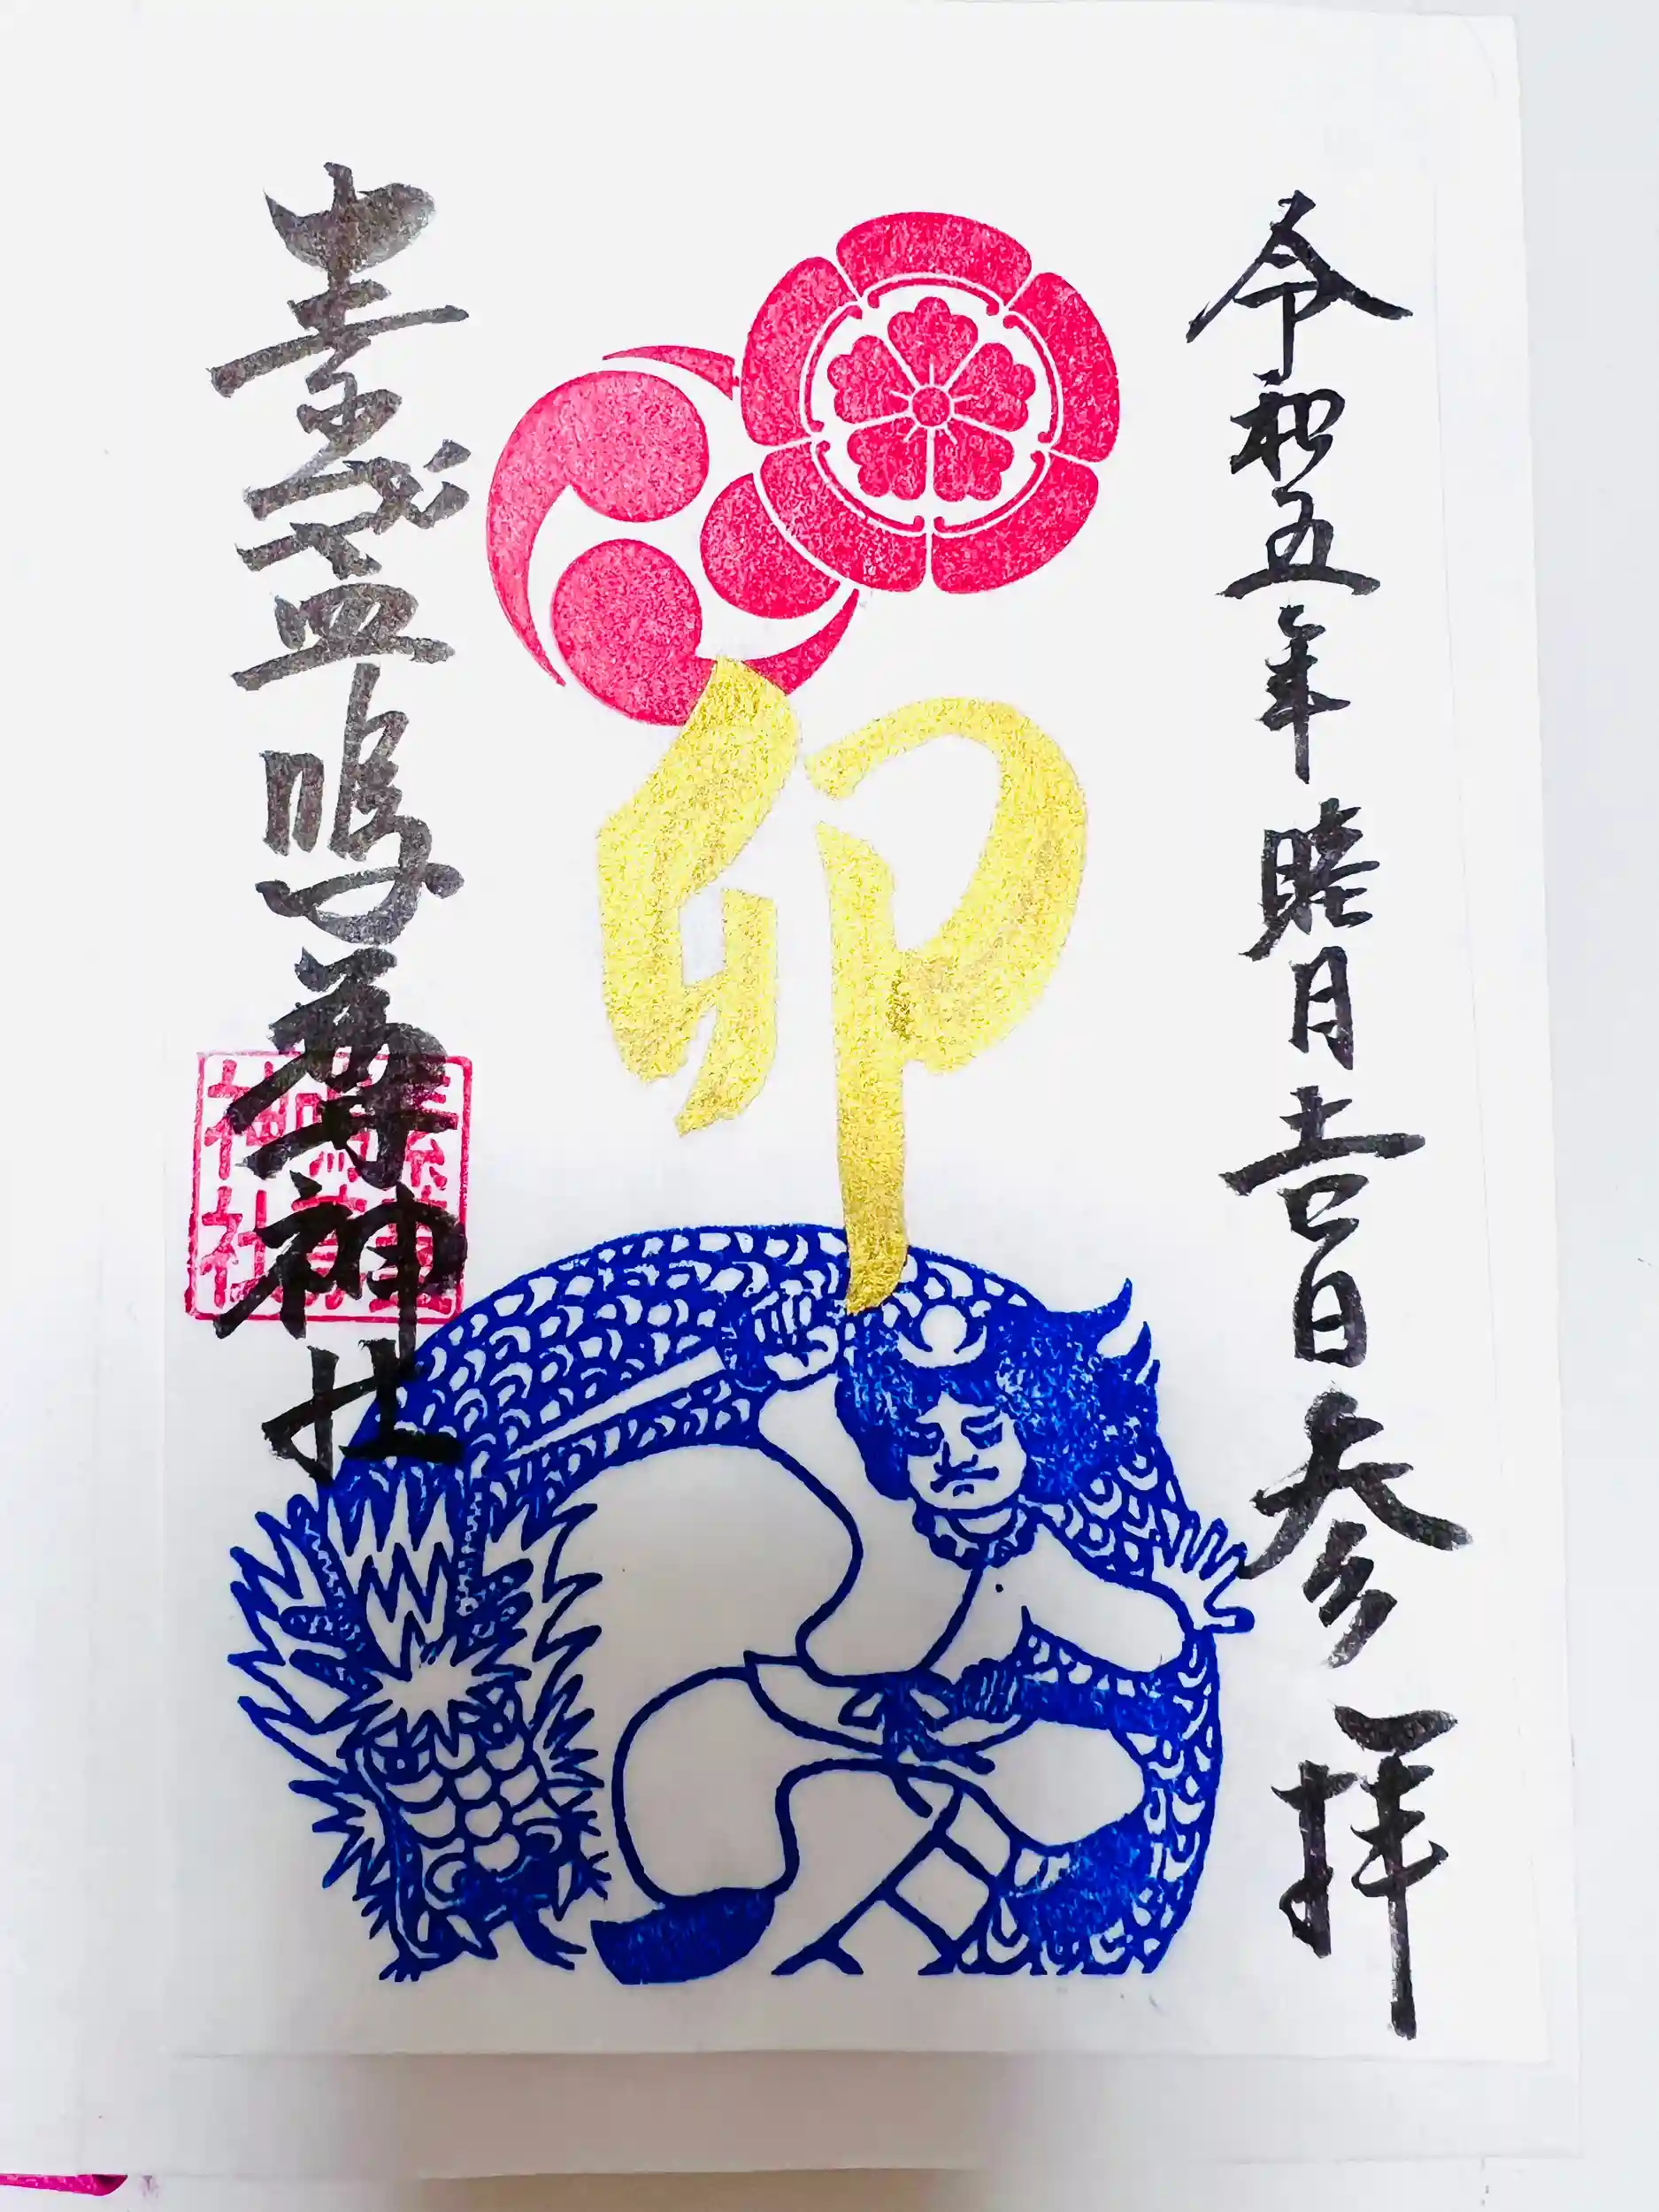 令和五年睦月壱日参拝
卯
素戔嗚尊神社